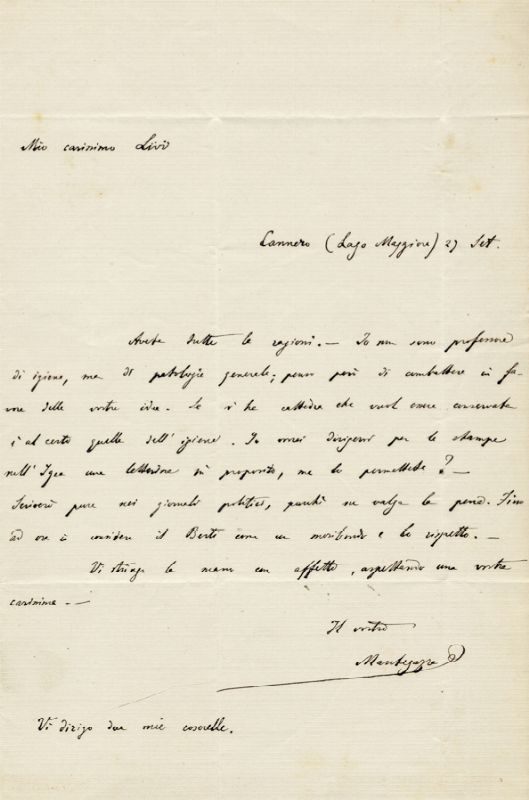 Mio carissimo Livi
Cannero (Lago Maggiore) 27 Set.
Avete tutte le ragioni. — Io non sono professore
di igiene, ma di patologia generale; penso però di combattere in fa-
vore delle vostre idee. Se vi ha cattedra che vuol essere conservata
è al certo quella dell'igiene. Io vorrei dirigervi per le stampe
nell'Igea una letterina in proposito, me lo permettete? —
Scriverò pure nei giornali politici, purché ne valga la pena. Fino
ad ora io considero il Berti come un moribondo e lo rispetto. —
Vi stringo la mano con affetto, aspettando una vostra
carissima. —
Il vostro
Mantegazza
Vi dirigo due mie coserelle.